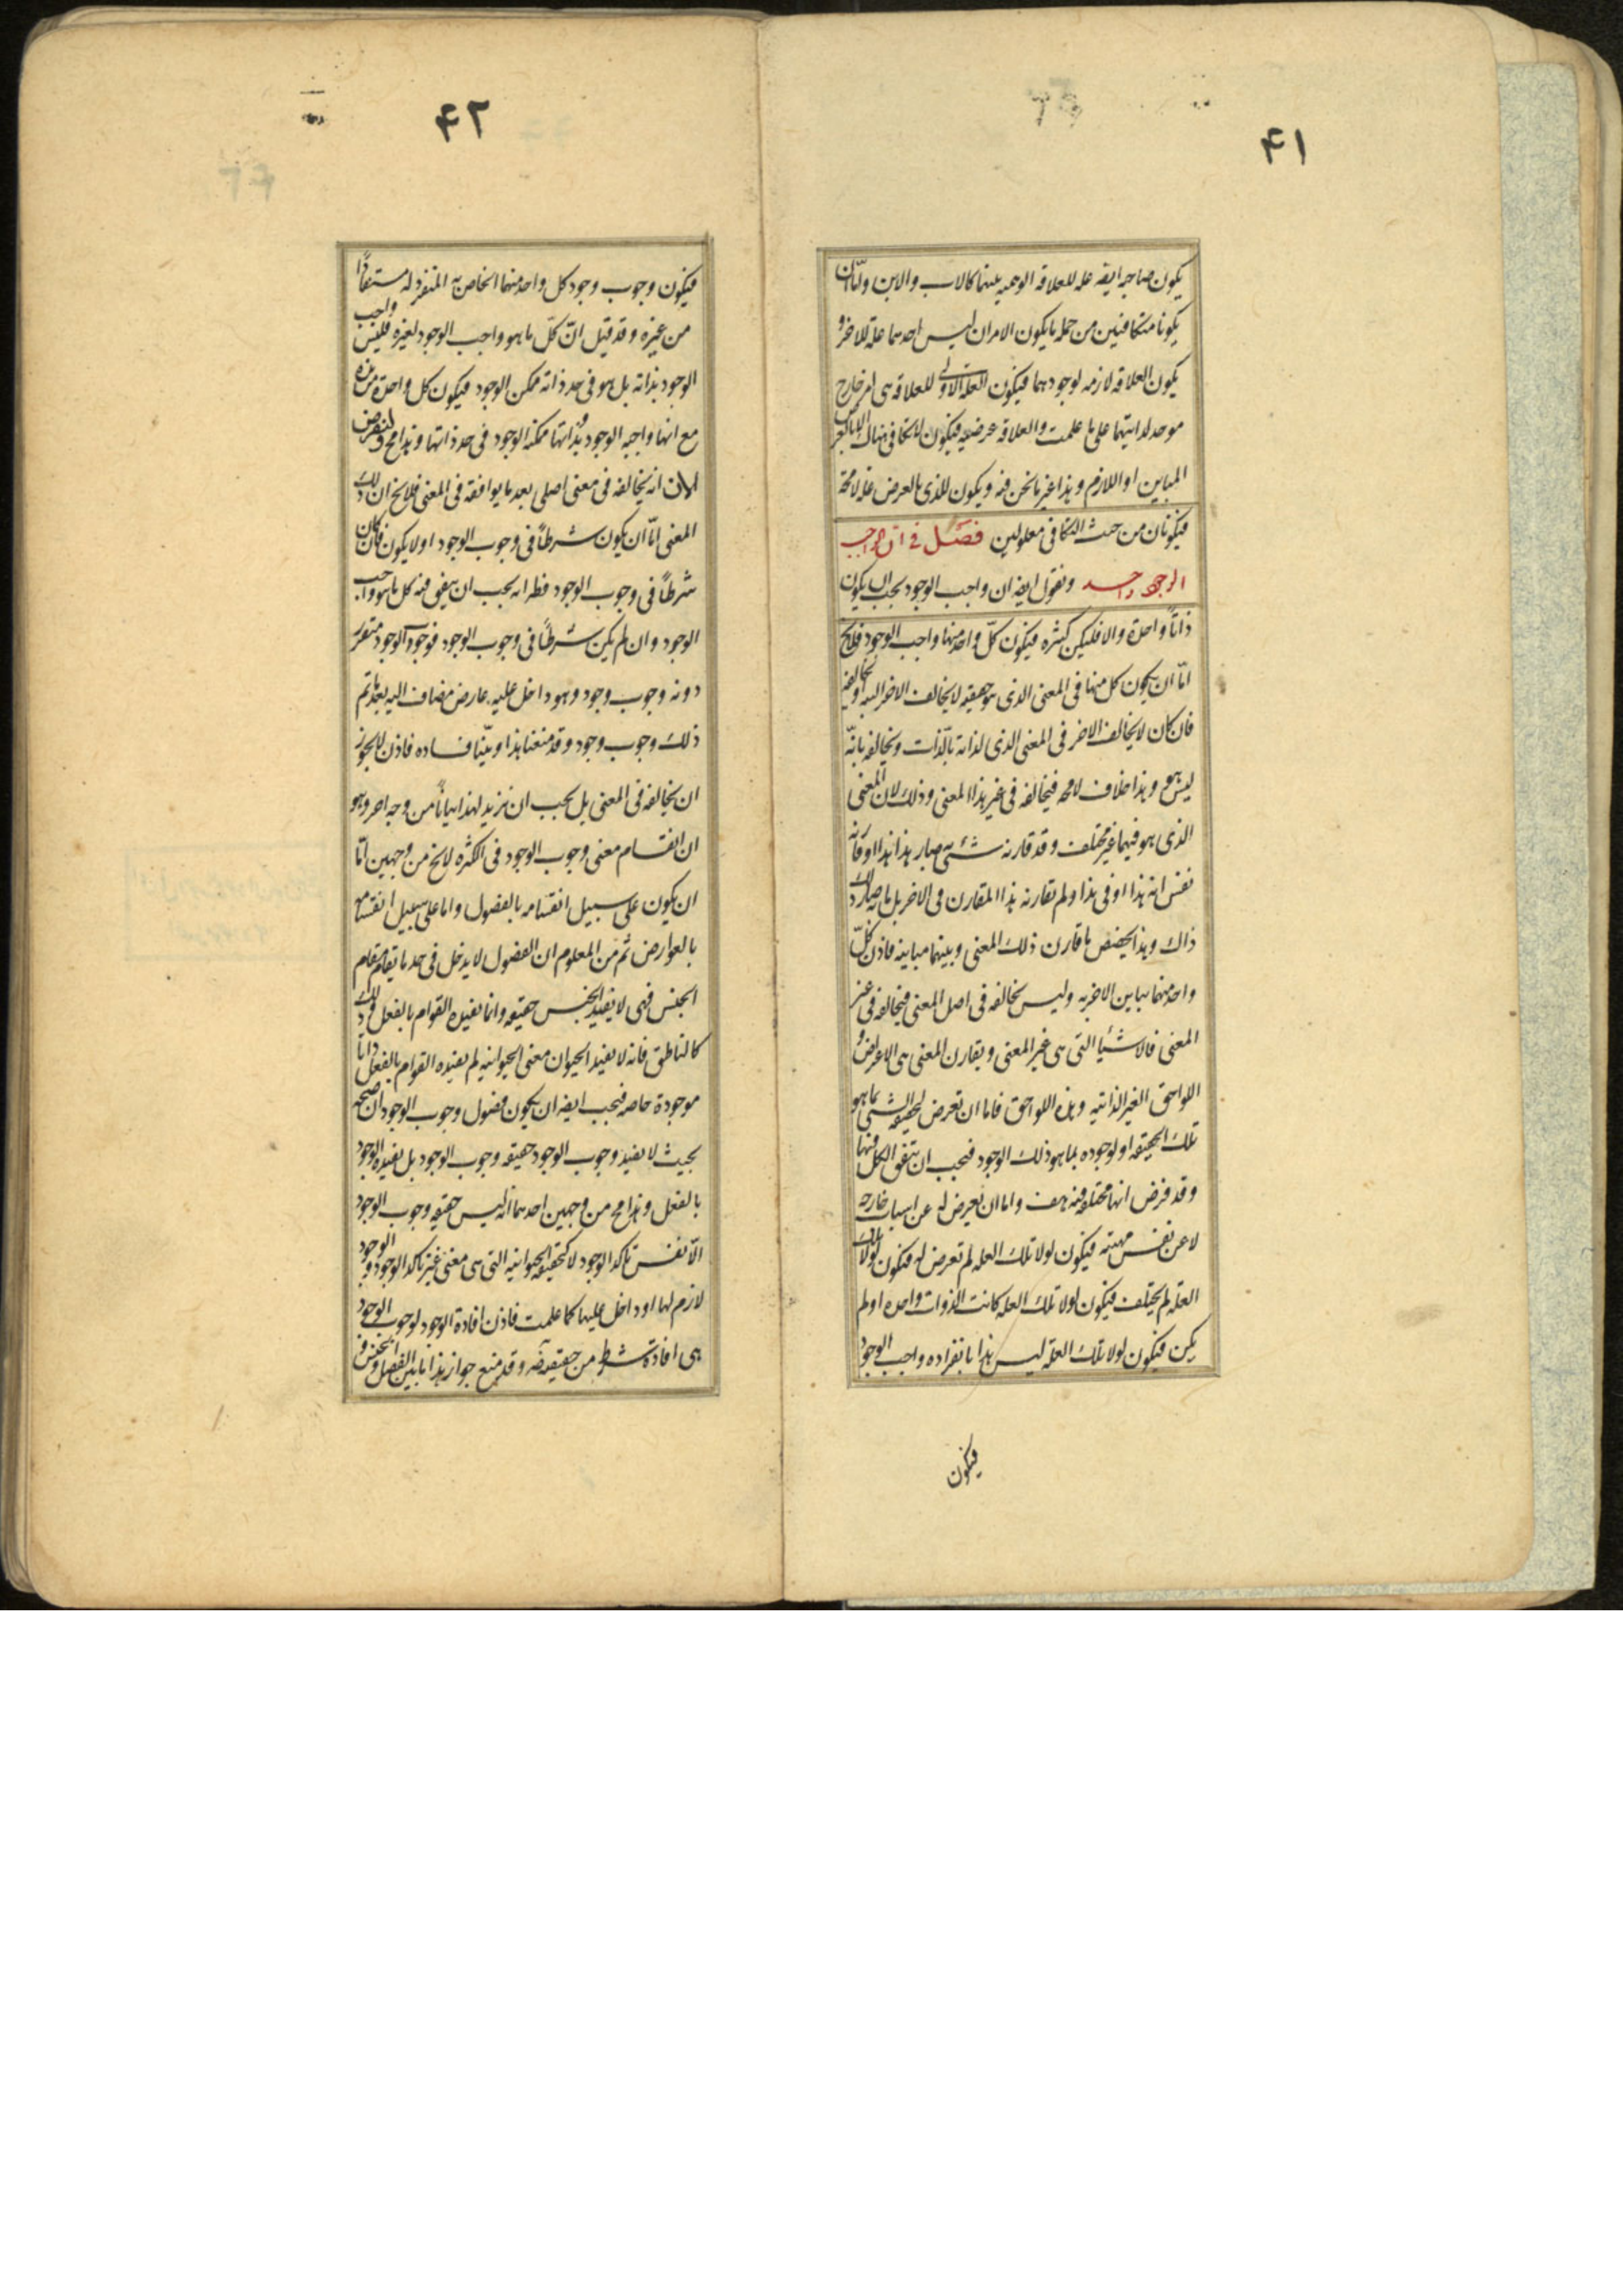 ۴۱
يكون صاحبه ايضه عله للعلاقه الوهميه بينهما كالاب والابن واما ان
يكونا متكافئين من جمله ما يكون الامران ليس احدهما علة للاخر و
يكون العلاقه لازمه لوجودهما فيكون العله الاولى للعلاقه هى امر خارج
موجد لذاتيهما على ما علمت والعلاقه عرضيه فيكون لا تكافى هناك الا بالعرض
المباين او اللازم وهذا غير ما نحن فيه ويكون للذى بالعرض عله لا محة
فيكونان من حيث التكافى معلولين فصل فى ان واجب
الوجود واحد ونقول ايضه ان واجب الوجود يجب ان يكون
ذاتاً واحدة والا فليكن كثره فيكون كلّ واحد منها واجب الوجود فلايخ
امّا ان يكون كل منها فى المعنى الذى هو حقيقته لا يخالف الاخر البته او يخالفه
فان كان لا يخالف الاخر فى المعنى الذى لذاته بالذات ويخالفه بانّه
ليس هو وهذا خلاف لا محه فيخالفه فى غير هذا المعنى وذلك لان المعنى
الذى هو فيهما غير مختلف وقد قارنه شئ به صار هذا هذا او قارنه
نفس انه هذا او فى هذا ولم يقارنه هذا المقارن فى الاخر بل ما به صار ذاك
ذاك وهذا تخصص ما قارن ذلك المعنى وبينهما مباينه فاذن كلّ
واحد منهما يباين الاخر به وليس يخالفه فى اصل المعنى فيخالفه فى غير
المعنى فالاشيا التى هى غير المعنى ويقارن المعنى هى الاعراض و
اللواحق الغير الذاتيه وهذه اللواحق فاما ان تعرض لحقيقة الشئ بما هو
تلك الحقيقه او لوجوده بما هو ذلك الوجود فيجب ان يتفق الكل فيها
وقد فرض انها مختلفه فيه هف واما ان يعرض له عن اسباب خارجه
لا عن نفس مهيته فيكون لولا تلك العله لم تعرض له فيكون لولا تلك
العلة لم يختلف فيكون لولا تلك العله كانت الذوات واحده او لم
يكن فيكون لولا تلك العله ليس هذا بانفراده واجب الوجود
فيكون
۴۲
فيكون وجوب وجود كل واحد منهما الخاص به المنفرد له مستفاداً
من غيره وقد قيل انّ كلّ ما هو واجب الوجود لغيره فليس واجب
الوجود بذاته بل هو فى حد ذاته ممكن الوجود فيكون كل واحدة من هذه
مع انها واجبه الوجود بذاتها ممكنه الوجود فى حد ذاتها وهذا مح ولنفرض
الان انه يخالفه فى معنى اصلى بعد ما يوافقه فى المعنى فلا يخ ان ذلك
المعنى امّا ان يكون شرطاً فى وجوب الوجود او لا يكون فان كان
شرطاً فى وجوب الوجود فظ انه يجب ان يتفق فيه كل ما هو واجب
الوجود وان لم يكن شرطاً فى وجوب الوجود فوجوب الوجود متقرر
دونه وجوب وجود وهو داخل عليه عارض مضاف اليه بعد ما تم
ذلك وجوب وجود وقد منعنا هذا وبيّنا فساده فاذن لا يجوز
ان يخالفه فى المعنى بل يجب ان نزيد لهذا بياناً من وجه اخر وهو
ان انقسام معنى وجوب الوجود فى الكثره لا يخ من وجهين امّا
ان يكون على سبيل انقسامه بالفصول واما على سبيل انقسامه
بالعوارض ثم من المعلوم ان الفصول لا يدخل فى حد ما يقام مقام
الجنس فهى لا يفيد الجنس حقيقه وانما يفيده القوام بالفعل وذلك
كالناطق فانه لا يفيد الحيوان معنى الحيوانيه بل يفيده القوام بالفعل ذاتاً
موجودة خاصه فيجب ايضه ان يكون فصول وجوب الوجود ان صحه
بحيث لا يفيد وجوب الوجود حقيقه وجوب الوجود بل يفيده الوجود
بالفعل وهذا مح من وجهين احدهما انه ليس حقيقه وجوب الوجود
الّا نفس تاكد الوجود لا كحقيقه الحيوانيه التى هى معنى غير تاكد الوجود و الوجود
لازم لها او داخل عليها كما علمت فاذن افادة الوجود لوجوب الوجود
هى افادة شرط من حقيقته ضه وقد منع جواز هذا ما بين الفصل والجنس و